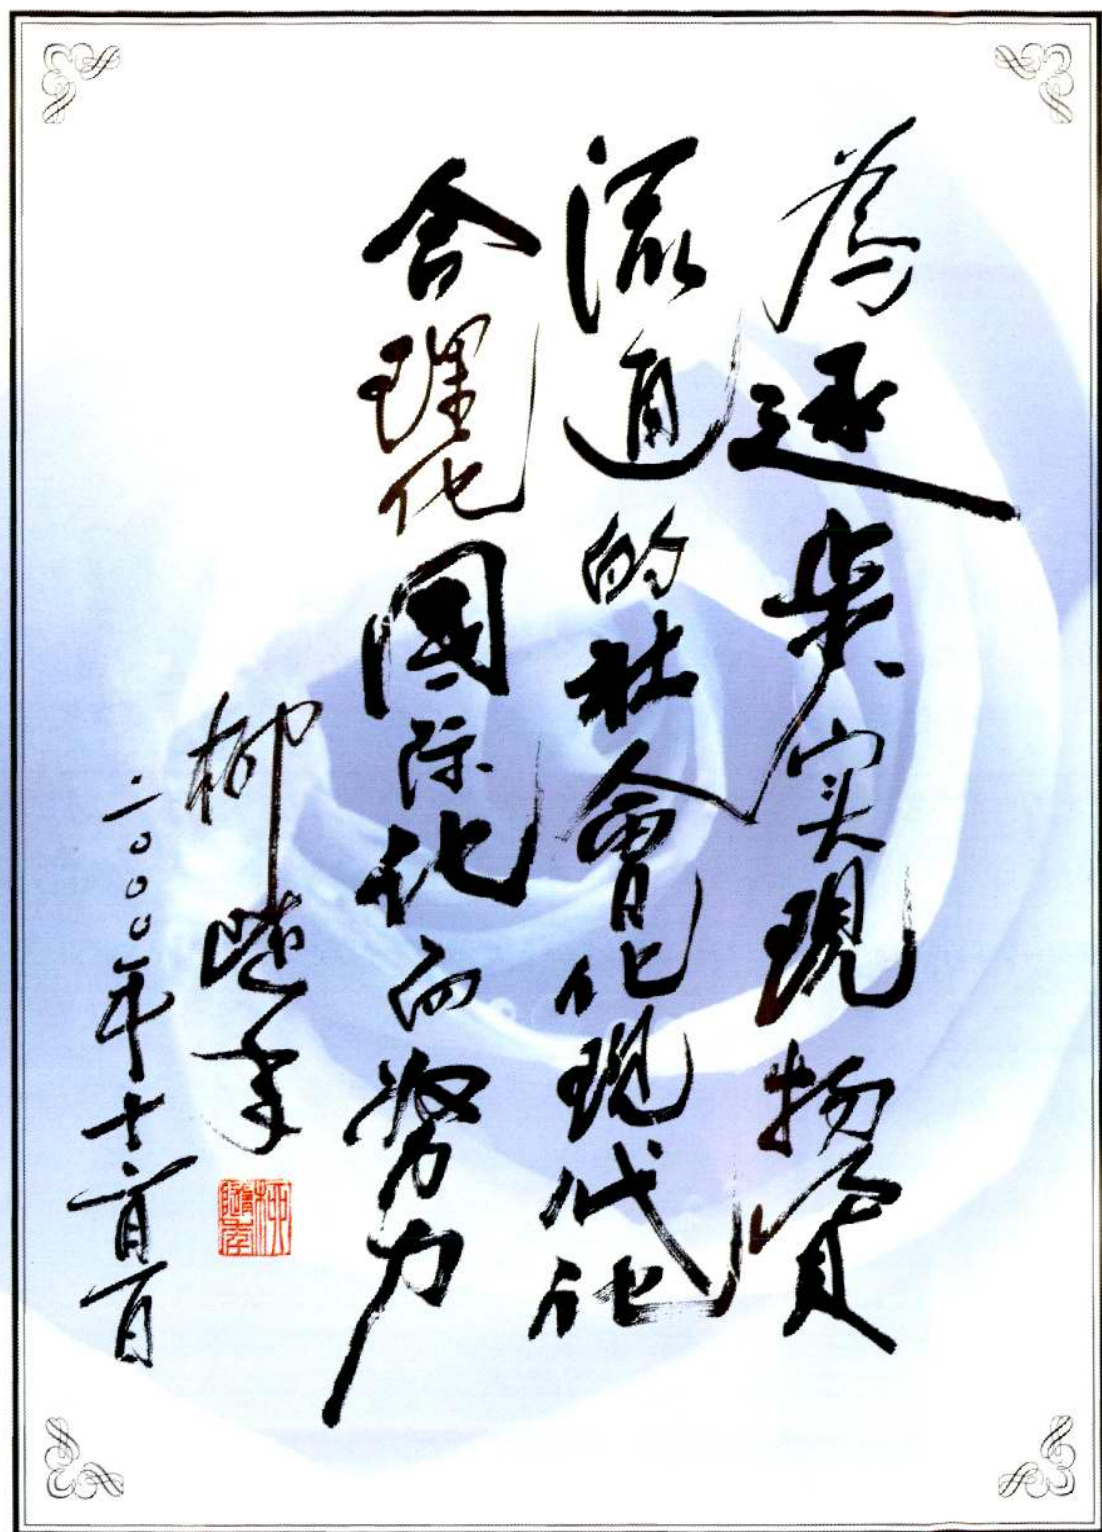 為逐步实現物資
流通的社會化現代化
合理化國际化而努力
柳随年
二〇〇〇年十二月一日
柳隨年